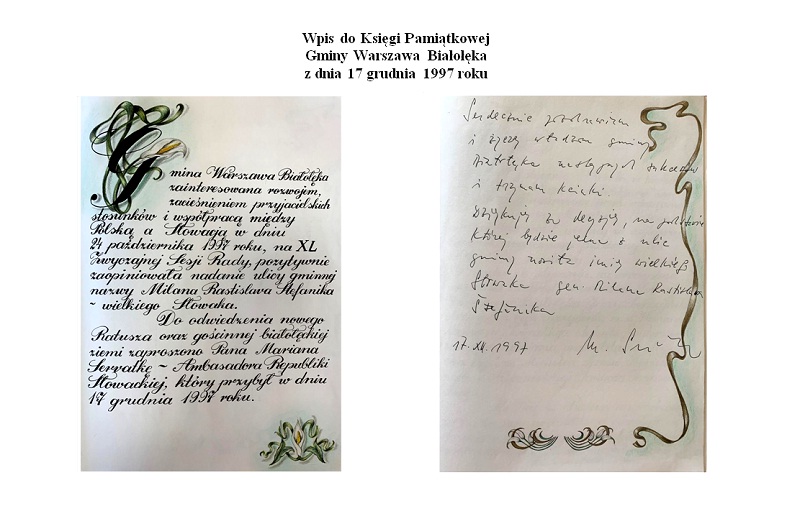 Wpis do Księgi Pamiątkowej
Gminy Warszawa Białołęka
z dnia 17 grudnia 1997 roku
Gmina Warszawa Białołęka
zainteresowana rozwojem,
zacieśnieniem przyjacielskich
stosunków i współpracą między
Polską a Słowacją w dniu
24 października 1997 roku, na XL
Zwyczajnej Sesji Rady, pozytywnie
zaopiniowała nadanie ulicy gminnej
nazwy Milana Rastislava Stefanika
~ wielkiego Słowaka.
Do odwiedzenia nowego
Ratusza oraz gościnnej białołęckiej
ziemi zaproszono Pana Mariana
Servatkę ~ Ambasadora Republiki
Słowackiej, który przybył w dniu
17 grudnia 1997 roku.
Serdecznie pozdrawiam
i życzę władzom gminy
Białołęka sukcesów
i trzymam kciuki.
Dziękuję za decyzję, na podstawie
której będzie jedna z ulic
gminy nosiła imię wielkiego
Słowaka gen. Milana Rastislava
Štefánika
17. XII. 1997
M.